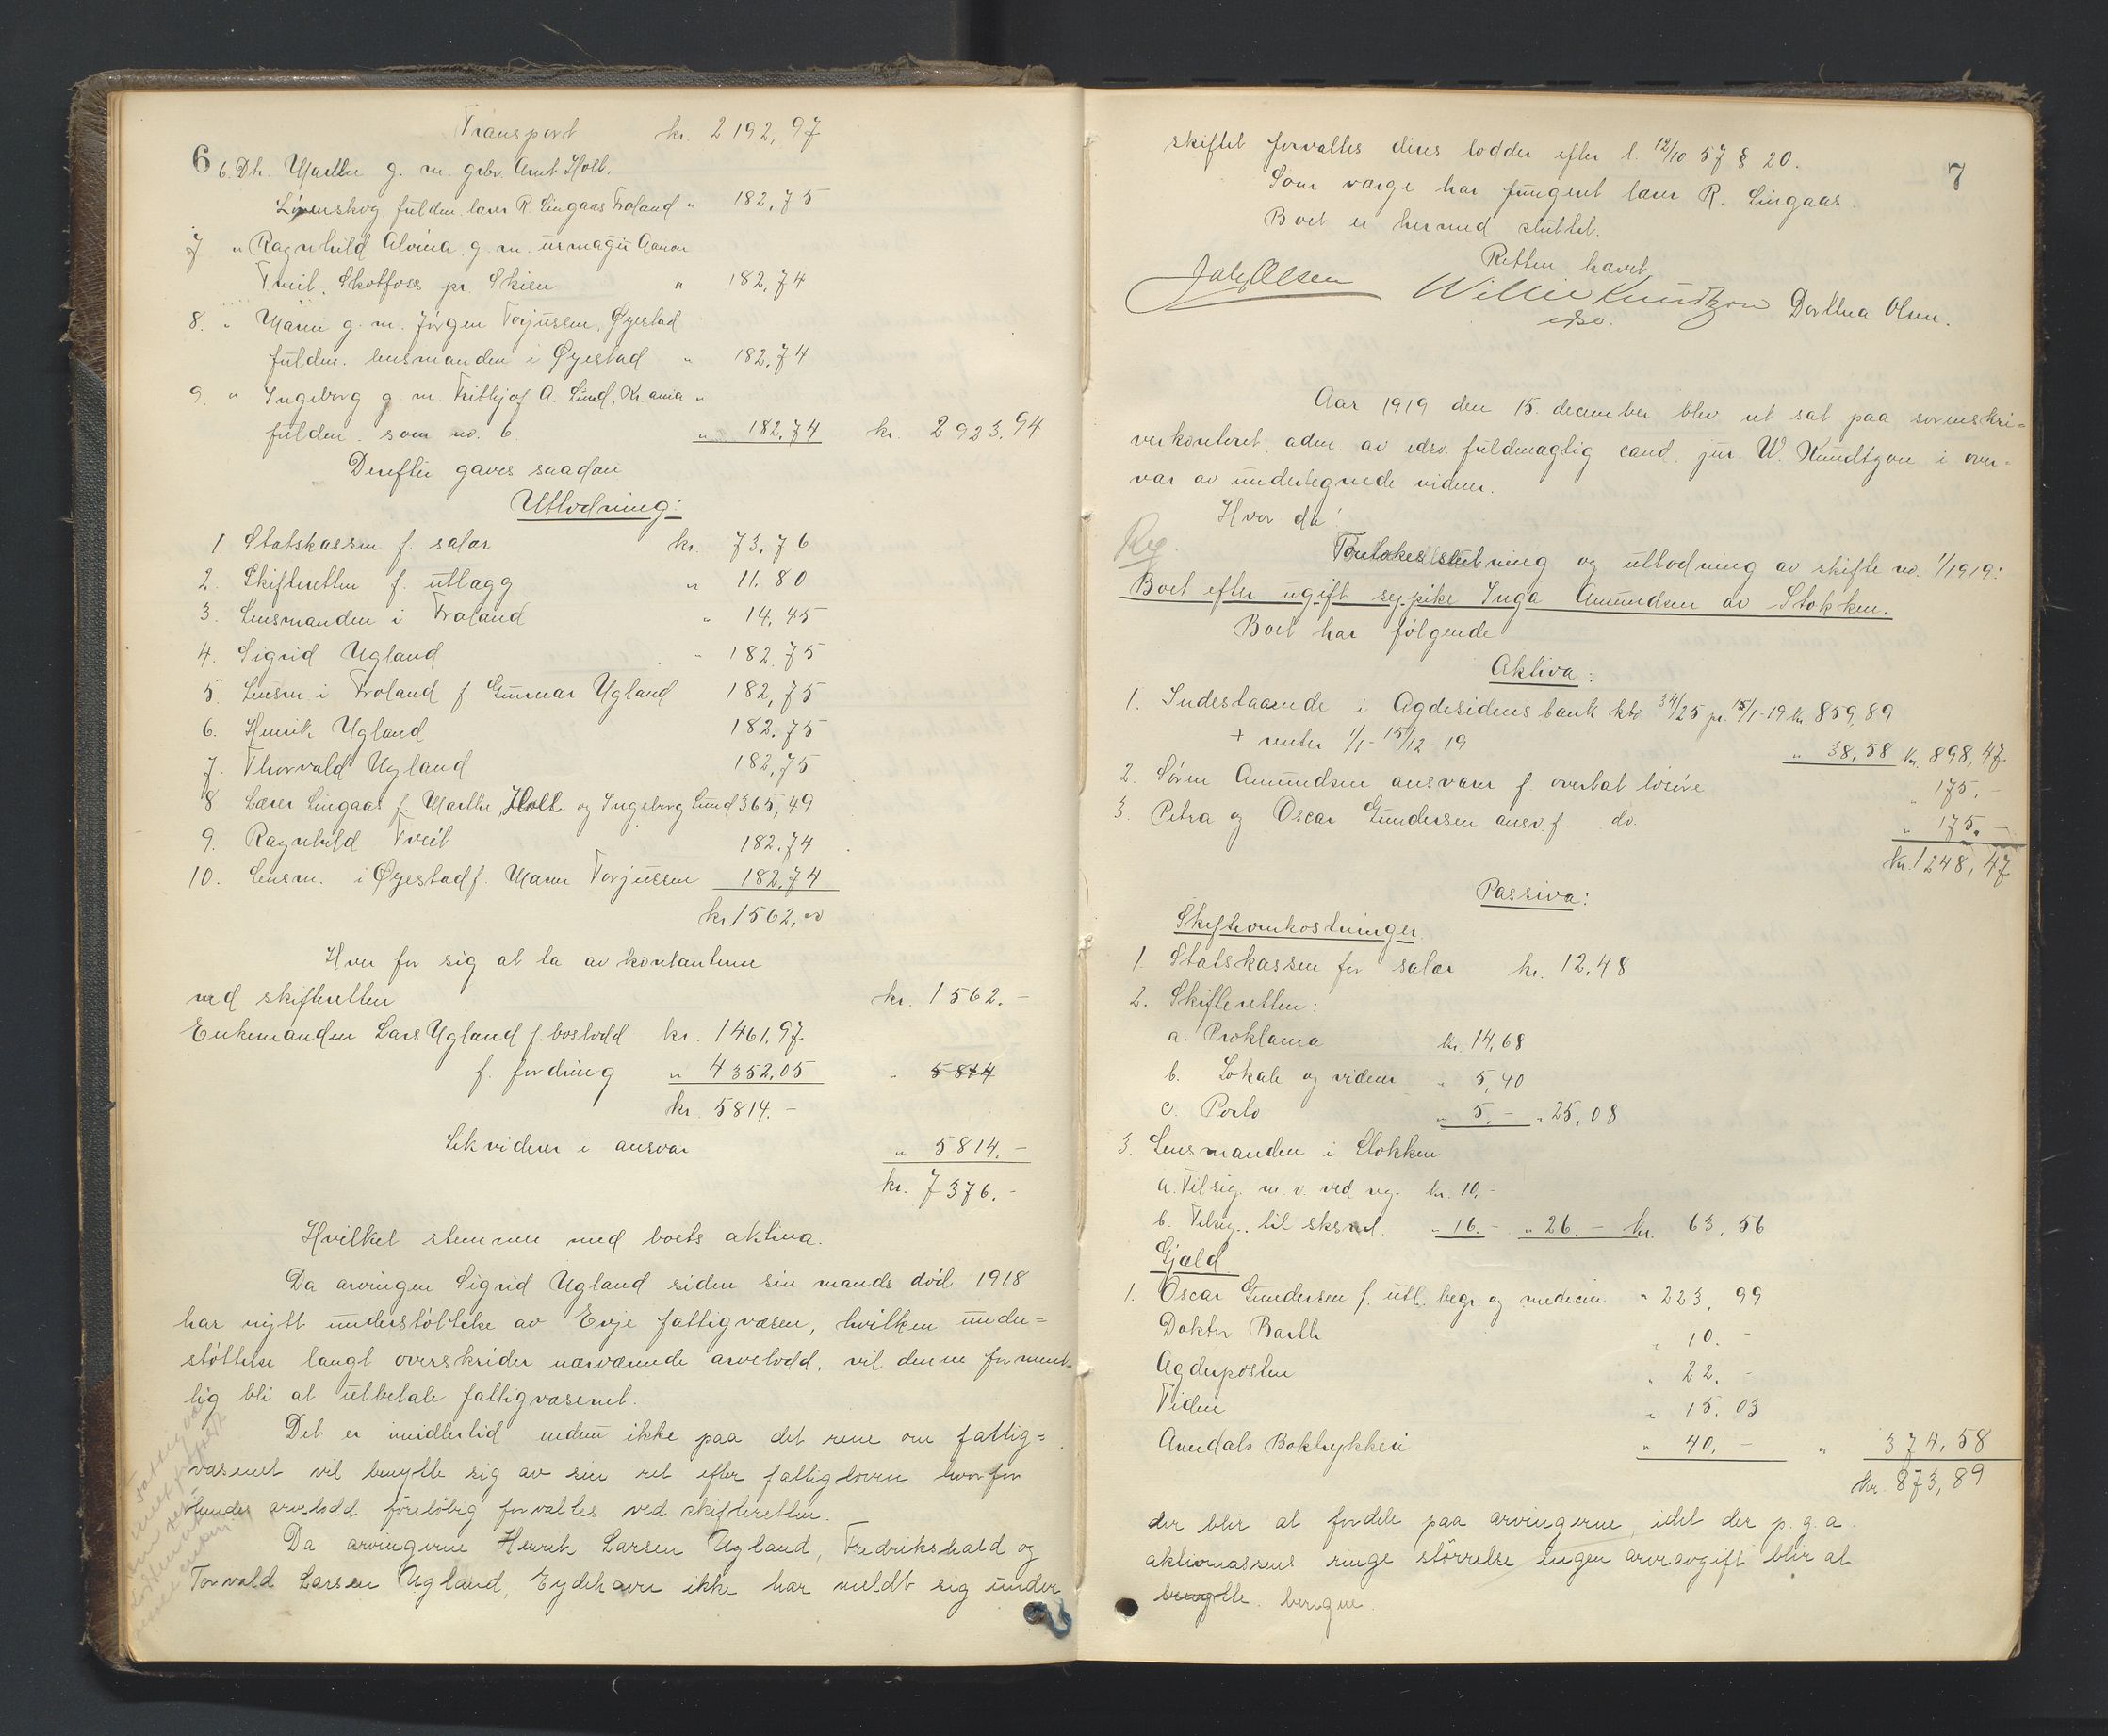 Transport kr. 2192,97
6
6. Dtr. Marthe g. m. grbr. Arnt Holt,
Lövenskog, fuldm. lærer R. Lingaas Froland " 182,75
7 " Ragnhild Alvina g. m. urmager Aanon
Tveit, Skotfoss pr. Skien " 182,74
8. " Maren g. m. Jörgen Torjussen, Øyestad
fuldm. lensmanden i Øyestad " 182,74
9. " Ingeborg g. m. Frithjof A. Lund, Kr.ania "
fuldm. som no. 6. " 182,74 kr. 2923,94
Derefter gaves saadan
Utlodning:
1 Statskassen f. salær kr. 73,76
2. Skifteretten f. utlægg " 11.80
3. Lensmanden i Froland " 14,45
4. Sigrid Ugland " 182,75
5 Lensm. i Froland f. Gunnar Ugland 182,75
6. Henrik Ugland 182,75
7. Thorvald Ugland 182,75
8 Lærer Lingaas f. Marthe Holt og Ingeborg Lund 365,49
9. Ragnhild Tveit 182,74
10. Lensm. i Øyestad f. Maren Torjussen 182,74
kr. 1562,00
Hver for sig at ta av kontanterne
ved skifteretten kr. 1562.-
Enkemanden Lars Ugland f. boslodd kr. 1461,97
f. fordring " 4352,05 " 5814
kr. 5814.-
Likviderer i ansvar " 5814.-
kr. 7376.-
Hvilket stemmer med boets aktiva.
Da arvingen Sigrid Ugland siden sin mands död 1918
har nytt understöttelse av Evje fattigvæsen, hvilken under=
støttelse langt overskrider nærværende arvelodd, vil denne forment=
lig bli at utbetale fattigvæsenet.
Det er imidlertid endnu ikke paa det rene om fattig=
væsenet vil benytte sig av sin ret efter fattigloven hvorfor
hendes arvelodd foreløbig forvaltes ved skifteretten.
Da arvingerne Henrik Larsen Ugland, Fredrikshald og
Torvald Larsen Ugland, Eydehavn ikke har meldt sig under
7
skiftet forvaltes deres lodder efter l. 12/10 57 § 20.
Som værge har fungert lærer R. Lingaas.
Boet er hermed sluttet.
Retten hævet
Jak. Olsen Willie Knudtzon Dorthea Olsen.
edsv.
Aar 1919 den 15. december blev ret sat paa sorenskri=
verkontoret, adm. av edsv. fuldmægtig cand. jur. W. Knudtzon i over=
vær av undertegnede vidner.
Hvor da!
Reg.
Foretokes slutning og utlodning av skifte no. 1/1919:
Boet efter ugift sypike Inga Amundsen av Stokken.
Boet har følgende
Aktiva:
1. Indestaaende i Agdesidens bank kto. 34/25 pr. 15/1-19 kr. 859,89
+ renter 1/1- 15/12-19 " 38,58 kr. 898,47
2. Sören Amundsen ansvarer f. overtat lösöre " 175.-
3. Petra og Oscar Gundersen ansv. f. do. " 175.-
kr. 1248,47
Passiva:
Skifteomkostninger
1. Statskassen for salær kr. 12,48
2. Skifteretten:
a. Proklama kr. 14,68
b. Lokale og vidner " 5,40
c. Porto " 5.- " 25,08
3. Lensmanden i Stokken
a. Tilsig. m. v. ved reg. kr. 10.-
b. Tilsig. til sksml. " 16.- " 26.- kr. 63,56
Gjæld
1. Oscar Gundersen f. utl. begr. og medicin " 223,99
Doktor Barth " 10.-
Agderposten " 22.-
Tiden " 15.03
Arendals Boktrykkeri " 40.- " 374,58
kr. 873,89
der blir at fordele paa arvingerne, idet der p.g.a.
aktivmassens ringe störrelse ingen arveavgift blir at
benytte. beregne.